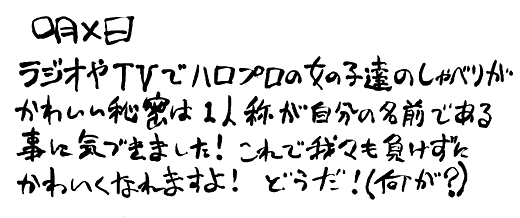 〇月×日
ラジオやTVでハロプロの女の子達のしゃべりが
かわいい秘密は1人称が自分の名前である
事に気づきました！これで我々も負けずに
かわいくなれますよ！どうだ！(何が？)